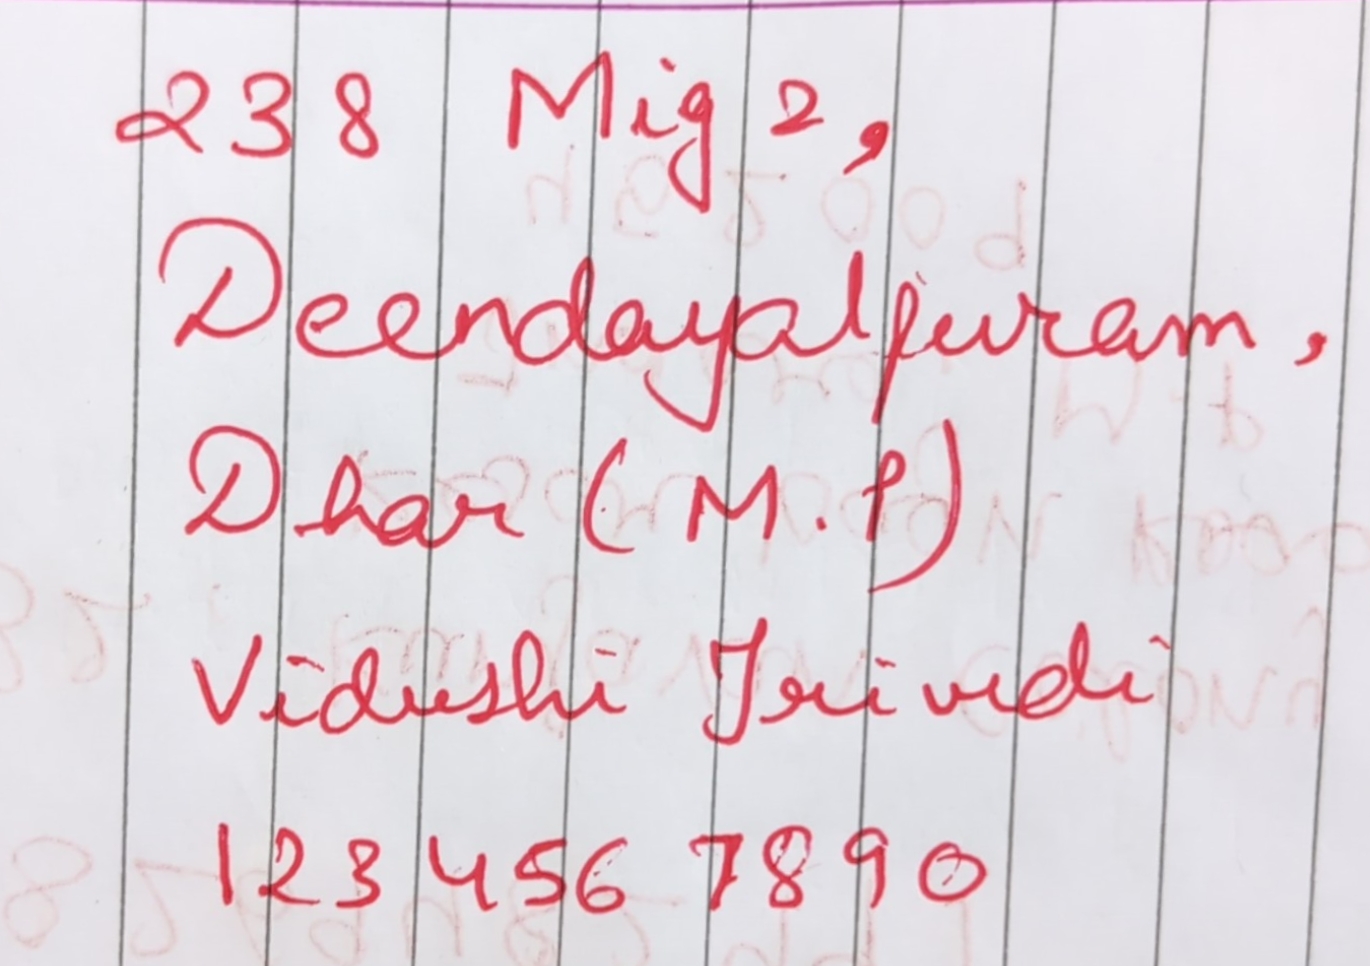 238 Mig 2,
Deendayalpuram,
Dhar (M.P)
Vidushi Trivedi
123 456 7890